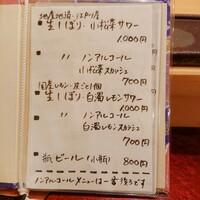 地産地消・江戸川産
生しぼり・小松菜サワー
1,000円
〃 ノンアルコール
小松菜スカッシュ
700円
国産レモン・皮ごと1個
生しぼり・白濁レモンサワー
1,000円
〃 ノンアルコール
白濁レモンスカッシュ
700円
瓶ビール(小瓶) 800円
ノンアルコールメニューは一番後ろです